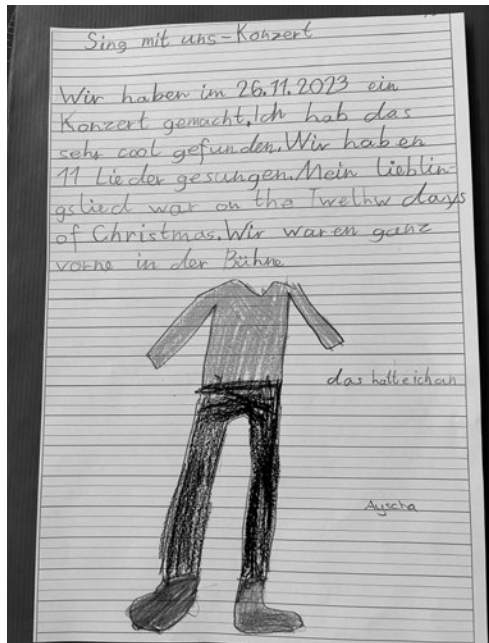 Sing mit uns-Konzert
Wir haben im 26.11.2023 ein
Konzert gemacht, Ich hab das
sehr cool gefunden. Wir haben
11 Lieder gesungen. Mein lieblin-
gslied war on the Twelhw days
of Christmas. Wir waren ganz
vorne in der Bühne
das hatte ich an
Ayscha